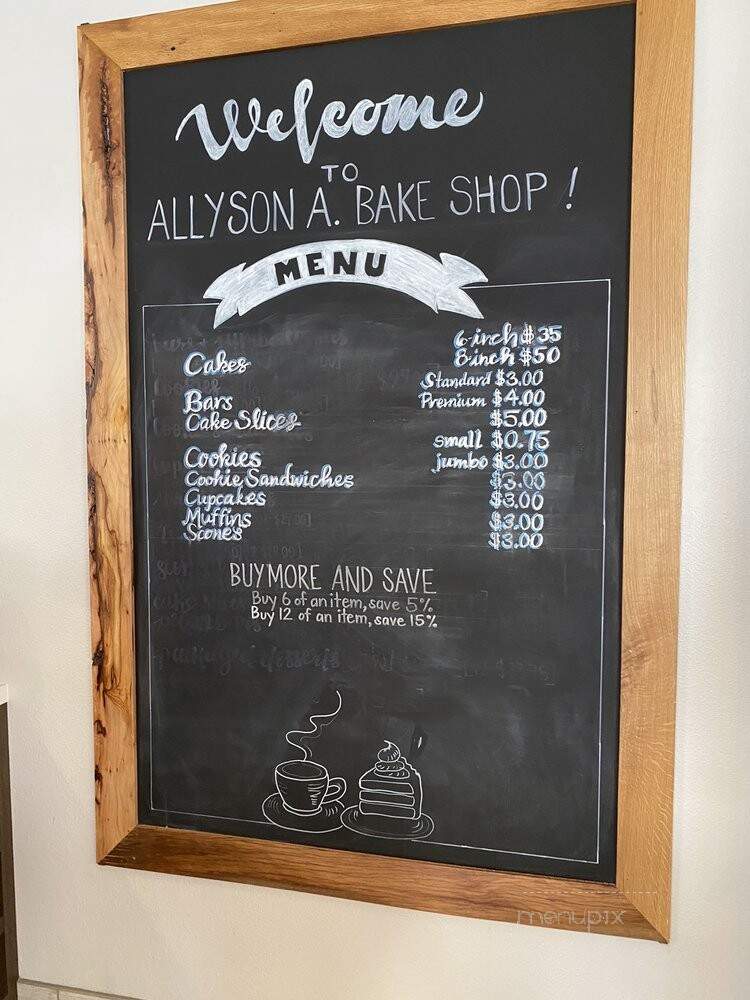 Welcome
TO
ALLYSON A. BAKE SHOP!
MENU
Cakes 6-inch $35
8-inch $50
Bars Standard $3.00
Premium $4.00
Cake Slices $5.00
Cookies small $0.75
jumbo $3.00
Cookie Sandwiches $3.00
Cupcakes $3.00
Muffins $3.00
Scones $3.00
BUY MORE AND SAVE
Buy 6 of an item, save 5%
Buy 12 of an item, save 15%
menupix